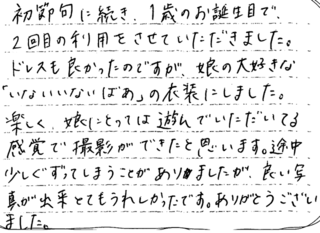 初節句に続き、1歳のお誕生日で、
2回目の利用をさせていただきました。
ドレスも良かったのですが、娘の大好きな
「いないいないばあ」の衣装にしました。
楽しく、娘にとっては遊んでいただいてる
感覚で撮影ができたと思います。途中
少しぐずってしまうことがありましたが、良い写
真が出来とてもうれしかったです。ありがとうござい
ました。